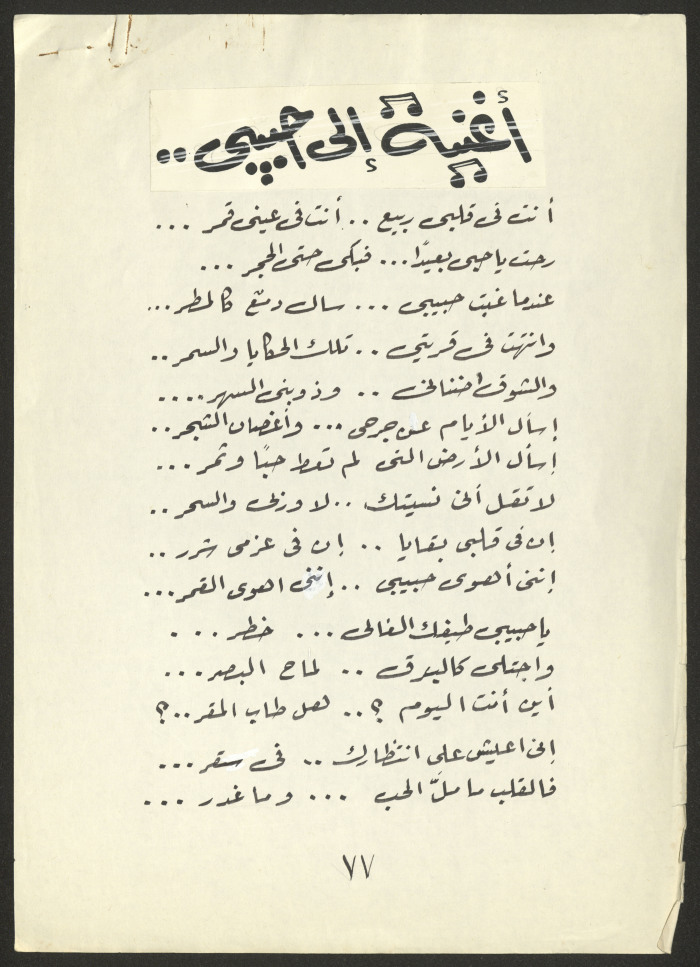 أغنية إلى حبيبي..
أنت فى قلبى ربيع .. أنت فى عينى قمر ...
رحت يا حبى بعيدًا... فبكى حتى الحجر ...
عندما غبت حبيبى ... سال دمع كالمطر...
وانتهت فى قريتي .. تلك الحكايا والسمر..
والشوق اضنانى .. وذوبنى السهر....
إسأل الأيام عن جرحى ... وأغصان الشجر..
إسأل الأرض التى لم تعط حبًا وثمر ...
لا تقل أنى نسيتك .. لا وربى والسحر ..
إن فى قلبى بقايا .. إن فى عزمى شرر ..
إننى أهوى حبيبى .. إننى اهوى القمر...
يا حبيبى طيفك الغالى ... خطر ...
واجتلى كالبرق .. لماح البصر ...
أين أنت اليوم ؟.. هل طاب المقر..؟
إنى اعيش على انتظارك .. فى سقر ...
فالقلب ما ملّ الحب ... وما غدر ...
٧٧